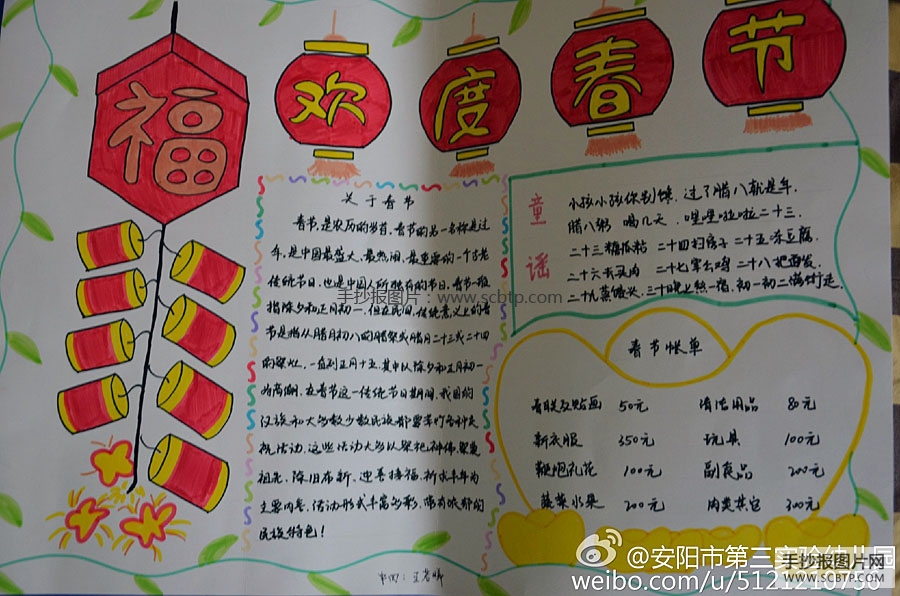 福
欢度春节
关于春节
春节,是农历的岁首,春节的另一名称是过
年,是中国最盛大、最热闹、最重要的一个古老
传统节日,也是中国人所独有的节日。春节一般
指除夕和正月初一,但在民间,传统意义上的春
节是指从腊月初八的腊祭或腊月二十三或二十四
的祭灶,一直到正月十五,其中以除夕和正月初一
为高潮。在春节这一传统节日期间,我国的
汉族和大多数少数民族都要举行各种庆
祝活动,这些活动大多以祭祀神佛、祭奠
祖先、除旧布新、迎喜接福、祈求丰年为
主要内容。活动形式丰富多彩,带有浓郁的
民族特色!
童谣
小孩小孩你别馋,过了腊八就是年,
腊八粥 喝几天,哩哩啦啦二十三,
二十三糖瓜粘 二十四扫房子 二十五冻豆腐,
二十六去买肉 二十七宰公鸡 二十八把面发,
二十九蒸馒头,三十晚上熬一宿,初一初二满街走。
春节帐单
春联及贴画 50元 清洁用品 80元
新衣服 350元 玩具 100元
鞭炮礼花 100元 副食品 200元
蔬菜水果 200元 肉类其它 300元
手抄报图片:www.scbtp.com
@安阳市第三实验幼儿园
weibo.com/u/5121210756
手抄报图片网
WWW.SCBTP.COM